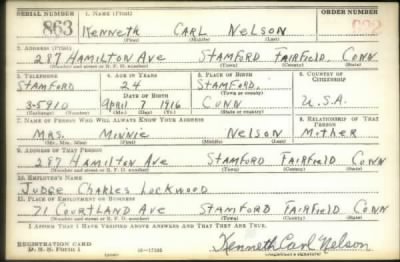 SERIAL NUMBER 1. NAME (Print) ORDER NUMBER
863 Kenneth CARL NELSON
(First) (Middle) (Last)
2. ADDRESS (Print)
287 HAMILTON AVE STAMFORD FAIRFIELD, CONN
(Number and street or R. F. D. number) (Town) (County) (State)
3. TELEPHONE 4. AGE IN YEARS 5. PLACE OF BIRTH 6. COUNTRY OF CITIZENSHIP
STAMFORD 24 STAMFORD,
DATE OF BIRTH (Town or county)
3-5910 April 7 1916 CONN U.S.A.
(Exchange) (Number) (Mo.) (Day) (Yr.) (State or country)
7. NAME OF PERSON WHO WILL ALWAYS KNOW YOUR ADDRESS 8. RELATIONSHIP OF THAT PERSON
MRS. MINNIE NELSON MOTHER
(Mr., Mrs., Miss) (First) (Middle) (Last)
9. ADDRESS OF THAT PERSON
287 HAMILTON AVE STAMFORD FAIRFIELD CONN
(Number and street or R. F. D. number) (Town) (County) (State)
10. EMPLOYER'S NAME
JUDGE CHARLES LOCKWOOD
11. PLACE OF EMPLOYMENT OR BUSINESS
71 COURTLAND AVE STAMFORD FAIRFIELD CONN
(Number and street or R. F. D. number) (Town) (County) (State)
I AFFIRM THAT I HAVE VERIFIED ABOVE ANSWERS AND THAT THEY ARE TRUE.
REGISTRATION CARD
D. S. S. Form 1 16-17105 Kenneth Carl Nelson